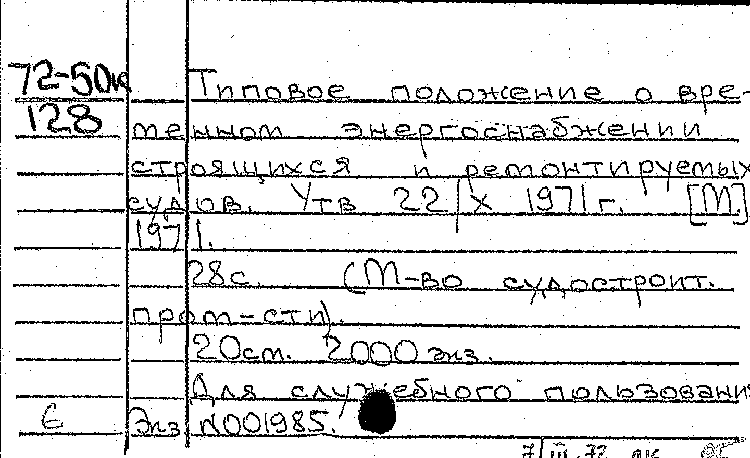 72-50к Типовое положение о вре-
128 менном энергоснабжении
строящихся и ремонтируемых
судов. Утв 22/X 1971 г. [М.]
1971.
28 с. (М-во судостроит.
пром-сти).
20 см. 2000 экз.
Для служебного пользования
Экз №001985.
7/III.72